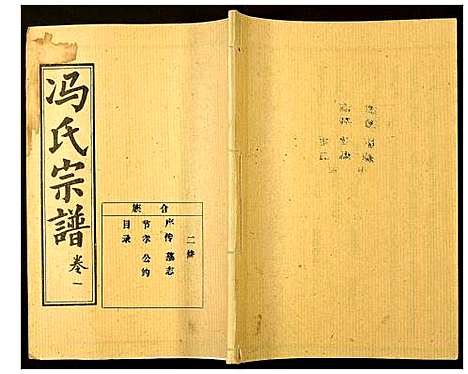 冯氏宗譜
卷一
合族
二修
序传 墓志
节孝 公约
目录